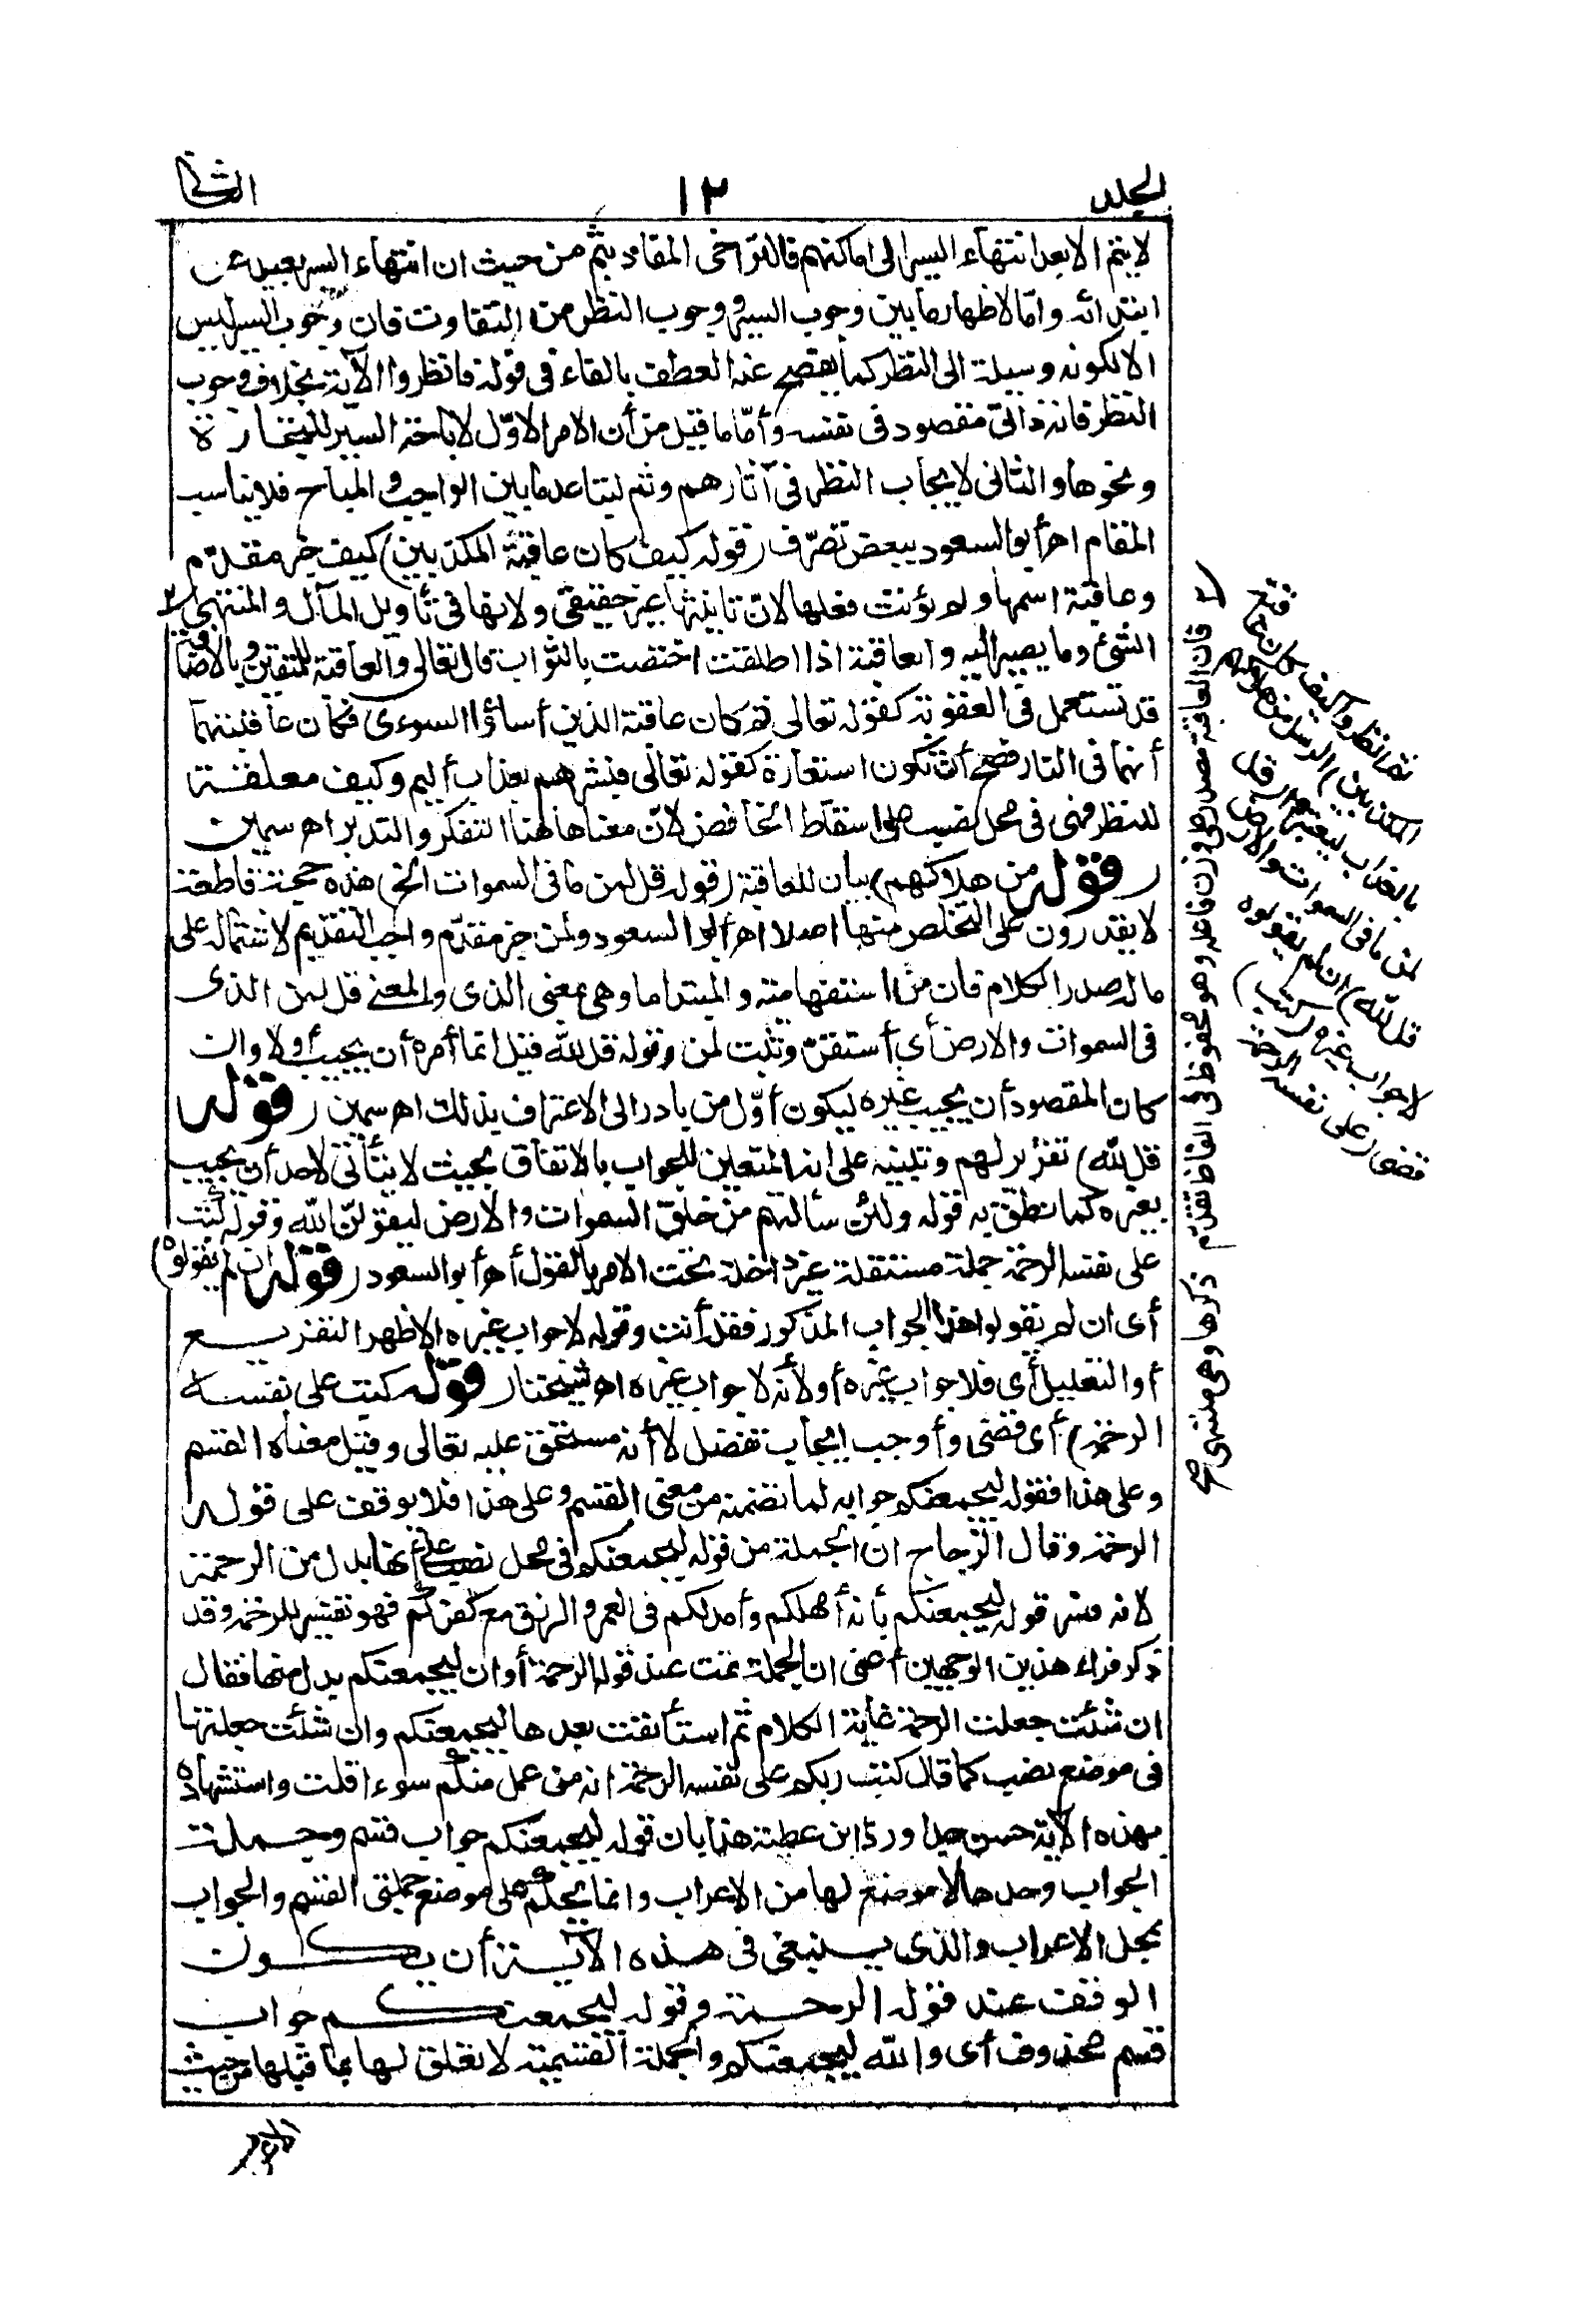 الجلد
١٢
الثانى
لايتم الا بعد انتهاء السير الى اماكنهم فالتراخى المفاد بثم من حيث ان انتهاء السير بعيد عن
ابتدائه واما لاظهار ما بين وجوب السير ووجوب النظر من التفاوت فان وجوب السير ليس
الا لكونه وسيلة الى النظر كما يفصح عنه العطف بالفاء فى قوله فانظروا الآية بخلاف وجوب
النظر فانه ذاتى مقصود فى نفسه وأما ما قيل من أن الامر الاول لاباحة السير للتجارة
ونحوها والثانى لايجاب النظر فى آثارهم وثم لتباعد ما بين الواجب والمباح فلايناسب
المقام اهـ أبو السعود ببعض تصرّف (قوله كيف كان عاقبة المكذبين) كيف خبر مقدّم
وعاقبة اسمها ولم يؤنث فعلها لانّ تأنيثها غير حقيقى ولانها فى تأويل المآل والمنتهى
الشئ وما يصير اليه والعاقبة اذا اطلقت اختصت بالثواب قال تعالى والعاقبة للمتقين وبالاضافة
قد تستعمل فى العقوبة كقوله تعالى ثم كان عاقبة الذين أساؤا السوءى فكان عاقبتهما
أنهما فى النار فصح أن تكون استعارة كقوله تعالى فبشرهم بعذاب أليم وكيف معلقة
للنظر فهى فى محل نصب على اسقاط الخافض لانّ معناها هنا التفكر والتدبر اهـ سمين
(قوله من هلاكهم) بيان للعاقبة (قوله قل لمن ما فى السموات الخ) هذه حجة قاطعة
لا يقدرون على التخلص منها اصلا اهـ أبو السعود ولمن خبر مقدّم واجب التقديم لاشتماله على
ماله صدر الكلام فان من استفهامية والمبتدا ما وهى بمعنى الذى والمعنى قل لمن الذى
فى السموات والارض أى أستقرّ وثبت لمن وقوله قل لله قيل انما أمره أن يجيب أولا وان
كان المقصود أن يجيب غيره ليكون أوّل من بادر الى الاعتراف بذلك اهـ سمين (قوله
قل لله) تقرير لهم وتنبيه على انه المتعين للجواب بالاتفاق بحيث لا يتأتى لاحد أن يجيب
بغيره كما نطق به قوله ولئن سألتهم من خلق السموات والارض ليقولنّ الله وقوله كتب
على نفسه الرحمة جملة مستقلة غير داخلة تحت الامر بالقول أهـ أبو السعود (قوله ان لم يقولوه)
أى ان لم يقولوا هذا الجواب المذكور فقل أنت وقوله لاجواب غيره الاظهر التفريع
أو التعليل أى فلا جواب غيره أو لأنه لا جواب غيره اهـ شيخنا (قوله كتب على نفسه
الرحمة) أى قضى وأوجب ايجاب تفضل لا أنه مستحق عليه تعالى وقيل معناه القسم
وعلى هذا فقوله ليجمعنكم جوابه لما تضمنه من معنى القسم وعلى هذا فلا يوقف على قوله
الرحمة وقال الزجاج ان الجملة من قوله ليجمعنكم فى محل نصب على أنها بدل من الرحمة
لانه فسر قوله ليجمعنكم بأنه أمهلكم وأمد لكم فى العمر والرزق مع كفركم فهو تفسير للرحمة وقد
ذكر فراء هذين الوجهين أعنى ان الجملة تمت عند قوله الرحمة أو ان ليجمعنكم بدل منها فقال
ان شئت جعلت الرحمة غاية الكلام ثم استأنفت بعدها ليجمعنكم وان شئت جعلتها
فى موضع نصب كما قال كتب ربكم على نفسه الرحمة انه من عمل منكم سوءا قلت واستشهاده
بهذه الآية حسن جدا وردّ ابن عطية هذا بان قوله ليجمعنكم جواب قسم وجملة
الجواب وحدها لا موضع لها من الاعراب وانما يحكم على موضع جملتى القسم والجواب
بمحل الاعراب والذى ينبغى فى هذه الآية أن يكون
الوقف عند قوله الرحمة وقوله ليجمعنكم جواب
قسم محذوف أى والله ليجمعنكم والجملة القسمية لا تعلق لها بما قبلها من حيث
٢) فان العاقبة مصدر على وزن فاعلة وهو محفوظ فى الفاظ تقدّم ذكرها وهى منتهى
ثم انظروا كيف كان عاقبة
المكذبين) الرسل من هلاكهم
بالعذاب ليعتبروا (قل
لمن ما فى السموات والارض
قل لله) ان لم يقولوه
لاجواب غيره (كتب)
قضى (على نفسه الرحمة